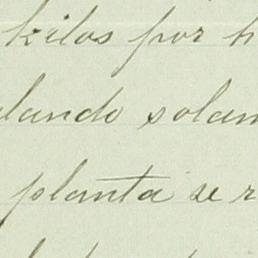 kilos por h
lando solam
planta se r